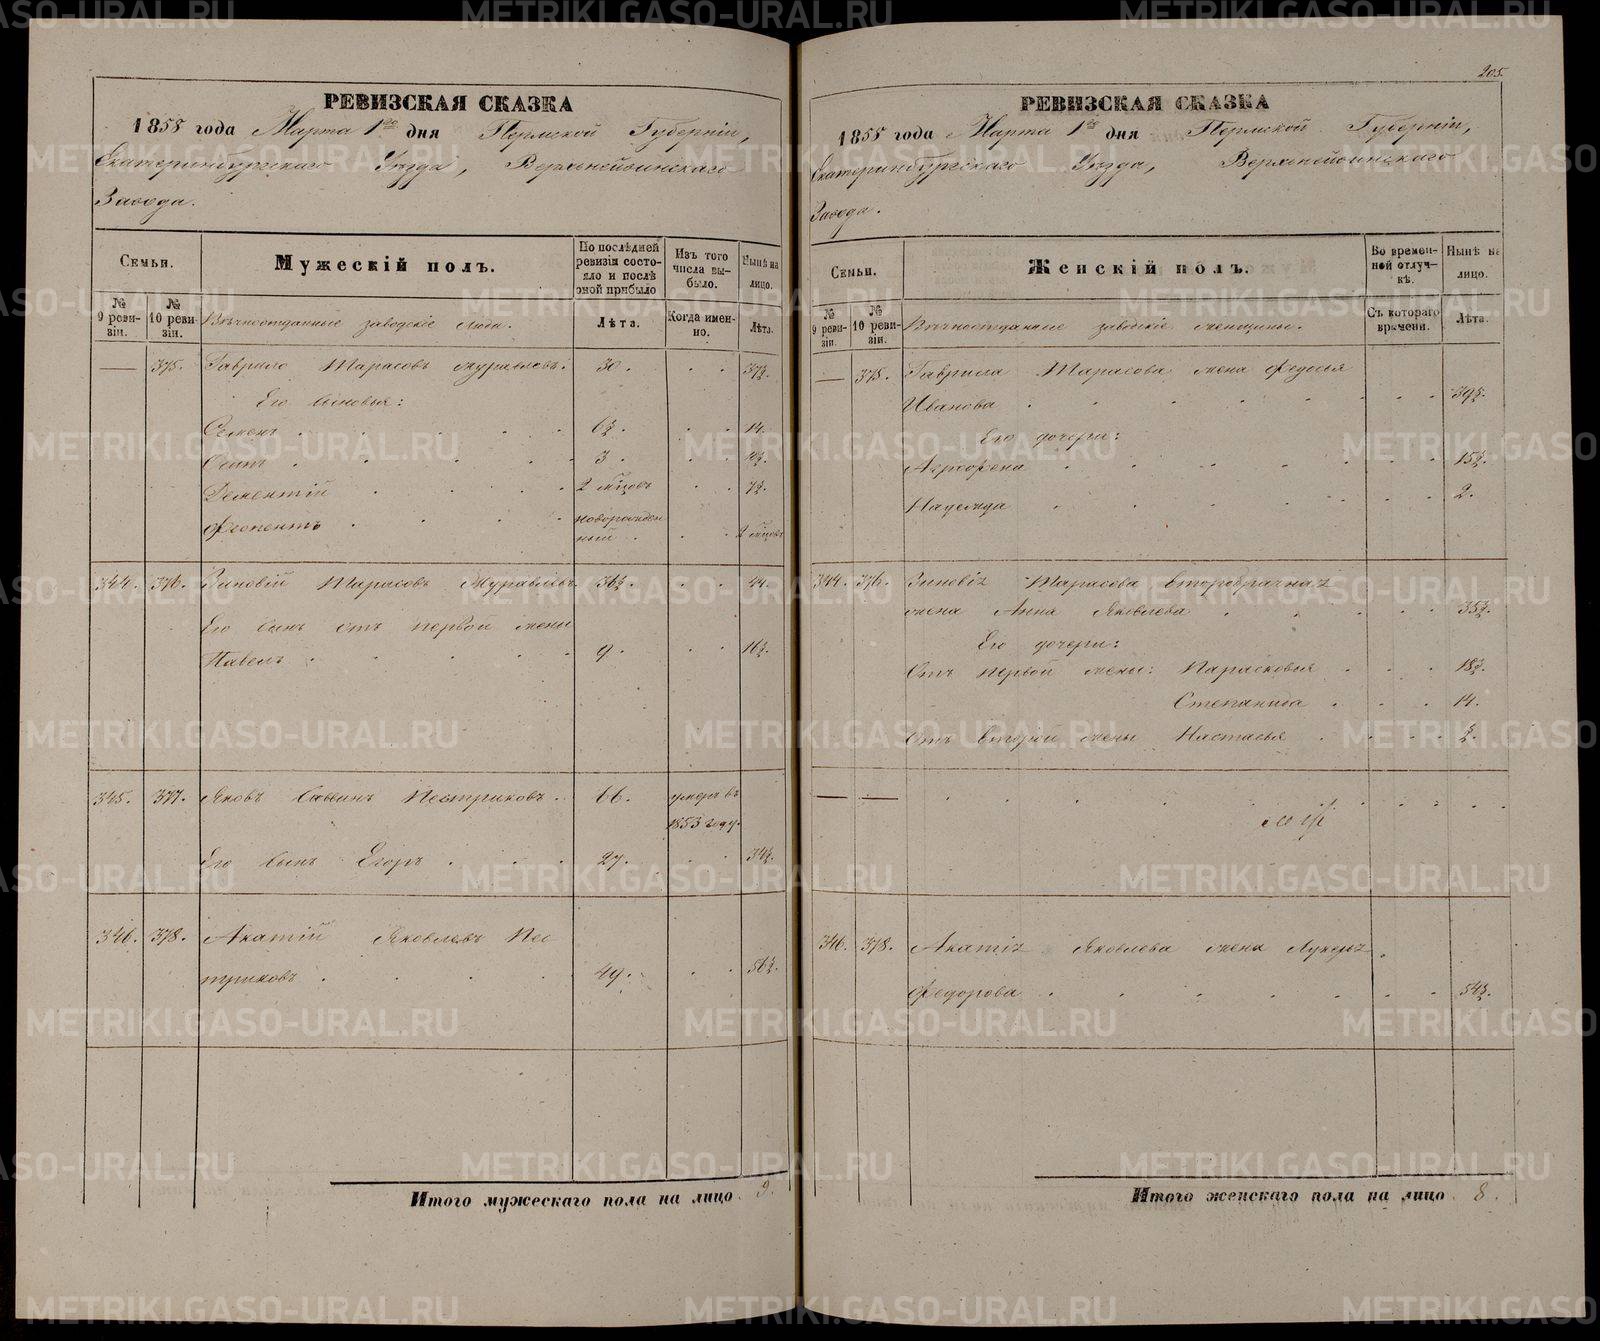 РЕВИЗСКАЯ СКАЗКА
1858 года Марта 1го дня Пермской Губерніи,
Екатеринбургскаго Уѣзда, Верхънейвинскаго
Завода.
Семьи.
Мужескій полъ.
По послѣдней ревизіи состояло и послѣ оной прибыло
Изъ того числа выбыло.
Нынѣ на лицо.
№ 9 ревизіи.
№ 10 ревизіи.
Вѣчноотданные заводскіе люди.
Лѣта.
Когда именно.
Лѣта.
— 375. Гаврило Тарасовъ Журавлевъ. 30. . . 37½.
Его сыновья:
Семенъ . . . . 6½. . . 14.
Осипъ . . . . 3. . . 10½.
Дементій . . . . 2 мѣсцовъ . . 7½.
Феопентъ . . . . новорожден
ный . . . 2 мѣсцовъ
344. 376. Зиновій Тарасовъ Журавлевъ 36½. . . 44.
Его сынъ отъ первой жены
Павелъ . . . . 9. . . 16½.
345. 377. Яковъ Саввинъ Пестриковъ. 66. умеръ въ
1853 году.
Его сынъ Егоръ . . . 27. . . 34½.
346. 378. Акатій Яковлевъ Пес
триковъ . . . . 49. . . 56½.
Итого мужескаго пола на лицо 9.
205.
РЕВИЗСКАЯ СКАЗКА
1858 года Марта 1го дня Пермской Губерніи,
Екатеринбургскаго Уѣзда, Верхънейвинскаго
Завода.
Семьи.
Женскій полъ.
Во временной отлучкѣ.
Нынѣ на лицо.
№ 9 ревизіи.
№ 10 ревизіи.
Вѣчноотданные заводскіе женщины.
Съ котораго времени.
Лѣта.
— 375. Гаврила Тарасова жена Федосья
Иванова . . . . . . . 39½.
Его дочери:
Агрофена . . . . . . . 15½.
Надежда . . . . . . . 2.
344. 376. Зиновія Тарасова второбрачная
жена Анна Яковлева . . . . . 35½.
Его дочери:
Отъ первой жены: Парасковья . . . 18½.
Степанида . . . . 14.
Отъ второй жены Настасья . . . . ½.
— — . . . . . . . . . .
346. 378. Акатія Яковлева жена Лукерья
Федорова . . . . . . . 54½.
Итого женскаго пола на лицо 8.
METRIKI.GASO-URAL.RU